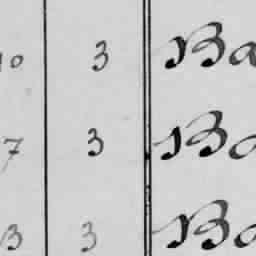 10 3 Ba
7 3 Bo
3 3 Bo